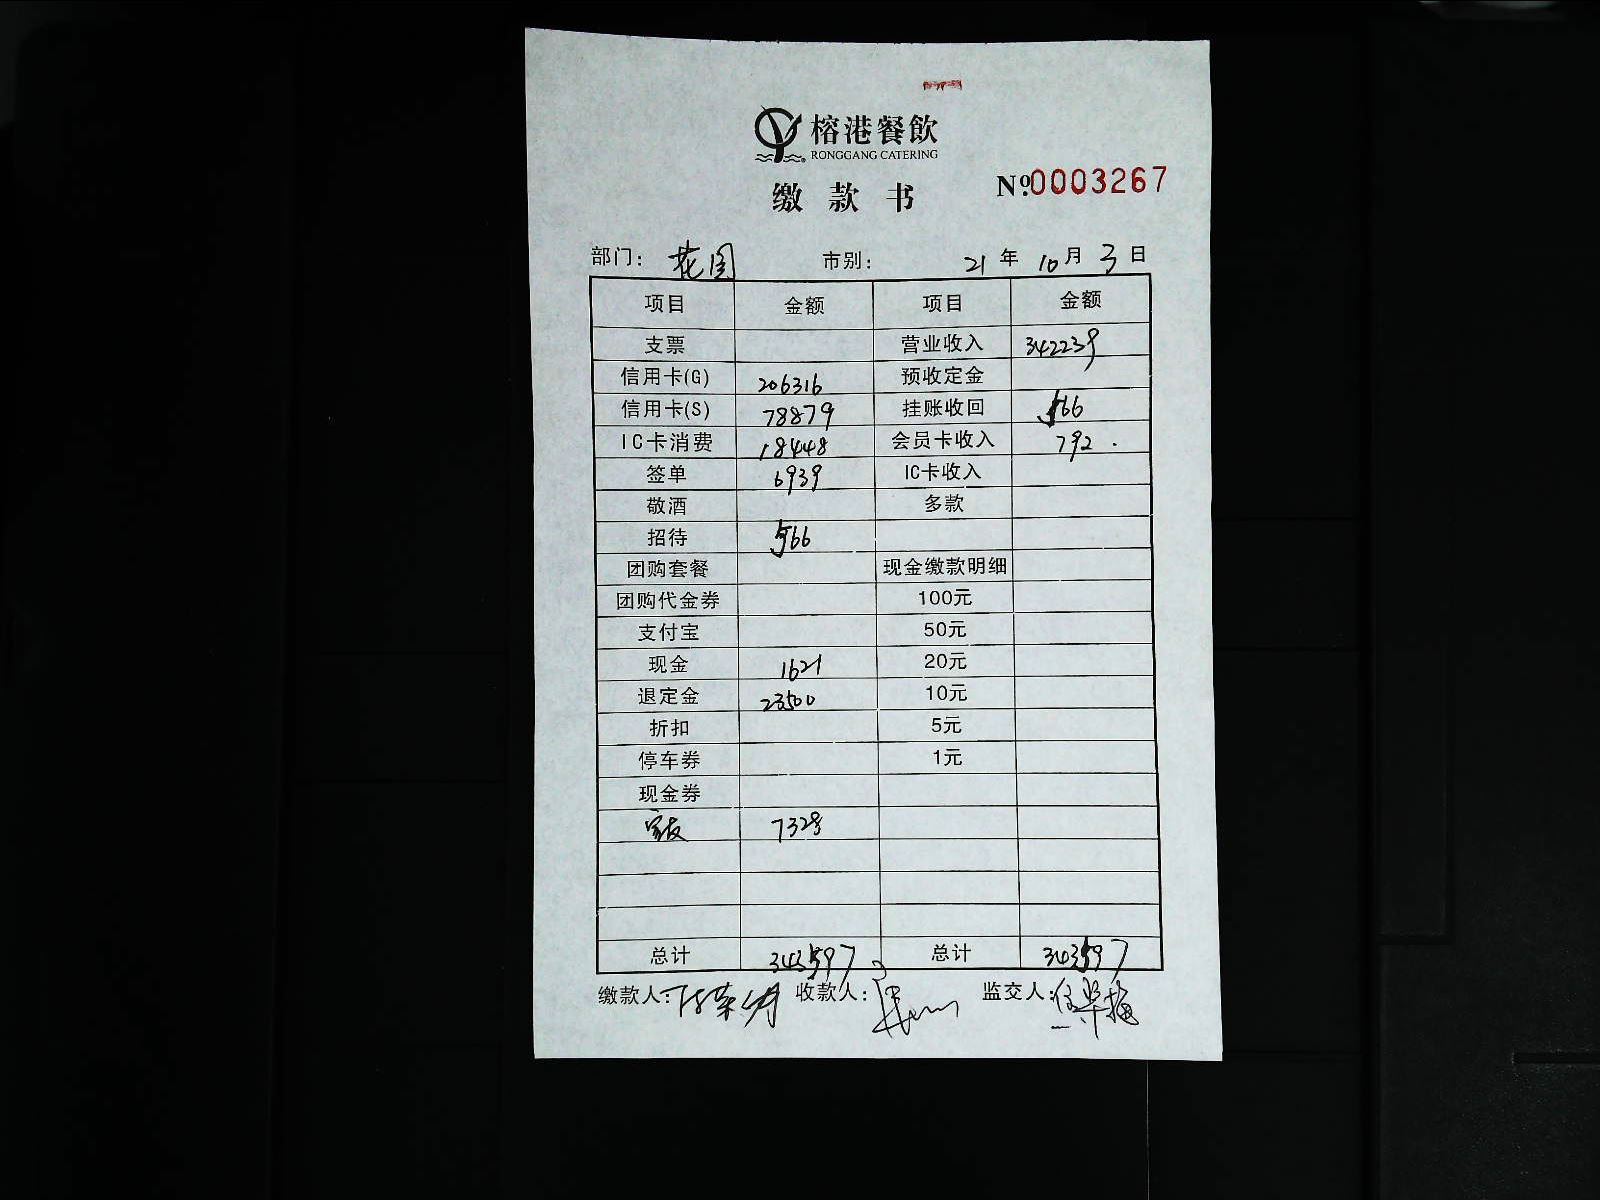 榕港餐飲
RONGGANG CATERING
缴款书
№0003267
部门：花园 市别： 21年10月3日
项目 金额 项目 金额
支票 营业收入 342239
信用卡(G) 206316 预收定金
信用卡(S) 78879 挂账收回 566
IC卡消费 18448 会员卡收入 792.
签单 6939 IC卡收入
敬酒 多款
招待 566
团购套餐 现金缴款明细
团购代金券 100元
支付宝 50元
现金 1621 20元
退定金 23500 10元
折扣 5元
停车券 1元
现金券
7328
总计 343597 总计 343597
缴款人： 收款人： 监交人：